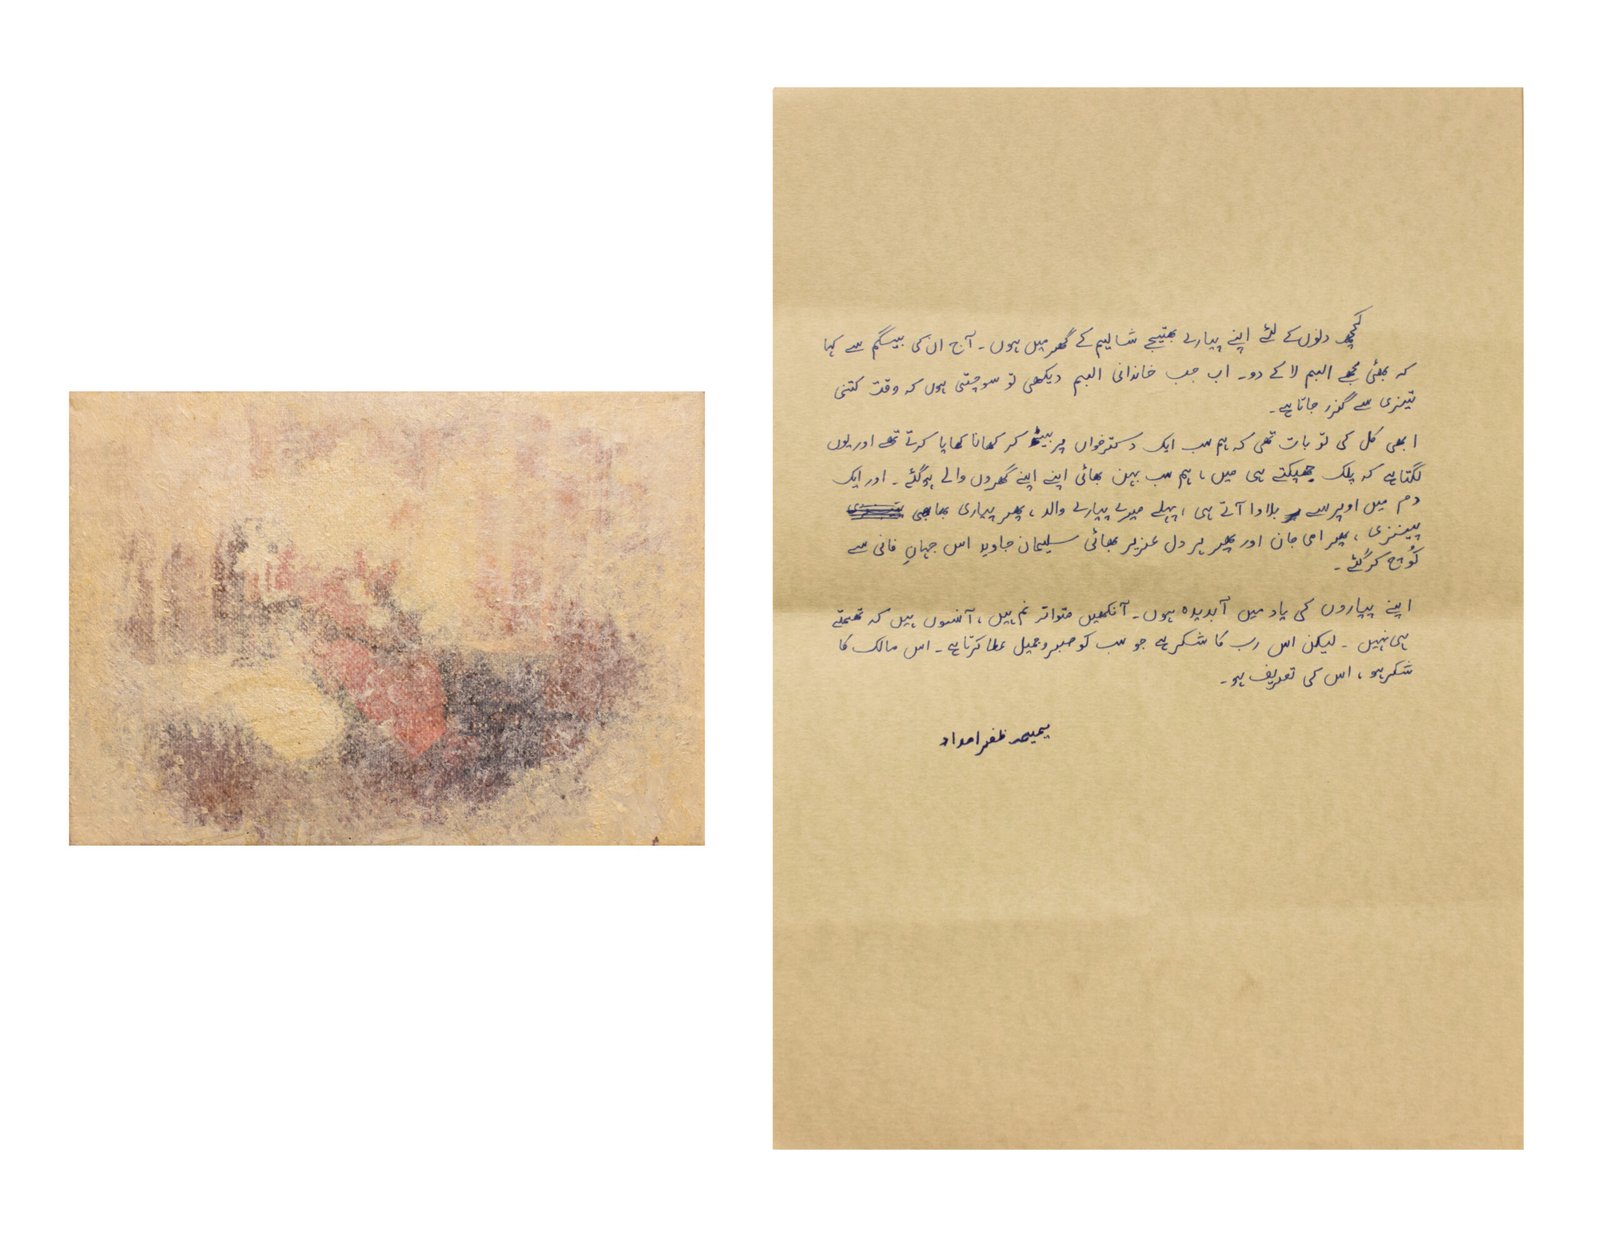 کچھ دنوں کے لئے اپنے پیارے بھتیجے شالیم کے گھر میں ہوں۔ آج ان کی بیگم سے کہا
کہ بھئی مجھے البم لا کے دو۔ اب جب خاندانی البم دیکھی تو سوچتی ہوں کہ وقت کتنی
تیزی سے گزر جاتا ہے۔
ابھی کل کی تو بات تھی کہ ہم سب ایک دسترخواں پر بیٹھ کر کھانا کھایا کرتے تھے اور یوں
لگتا ہے کہ پلک جھپکتے ہی میں، ہم سب بہن بھائی اپنے اپنے گھروں والے ہوگئے۔ اور ایک
دم میں اوپر سے بلاوا آتے ہی، پہلے میرے پیارے والد، پھر پیاری بھابھی
، پھر امی جان اور پھر ہر دل عزیز بھائی سلیمان جاوید اس جہانِ فانی سے
کُوچ کر گئے۔
اپنے پیاروں کی یاد میں آبدیدہ ہوں۔ آنکھیں متواتر نم ہیں، آنسوں ہیں کہ تھمتے
ہی نہیں۔ لیکن اس رب کا شکر ہے جو سب کو صبر و جمیل عطا کرتا ہے۔ اس مالک کا
شکر ہو، اس کی تعریف ہو۔
ظفر امداد